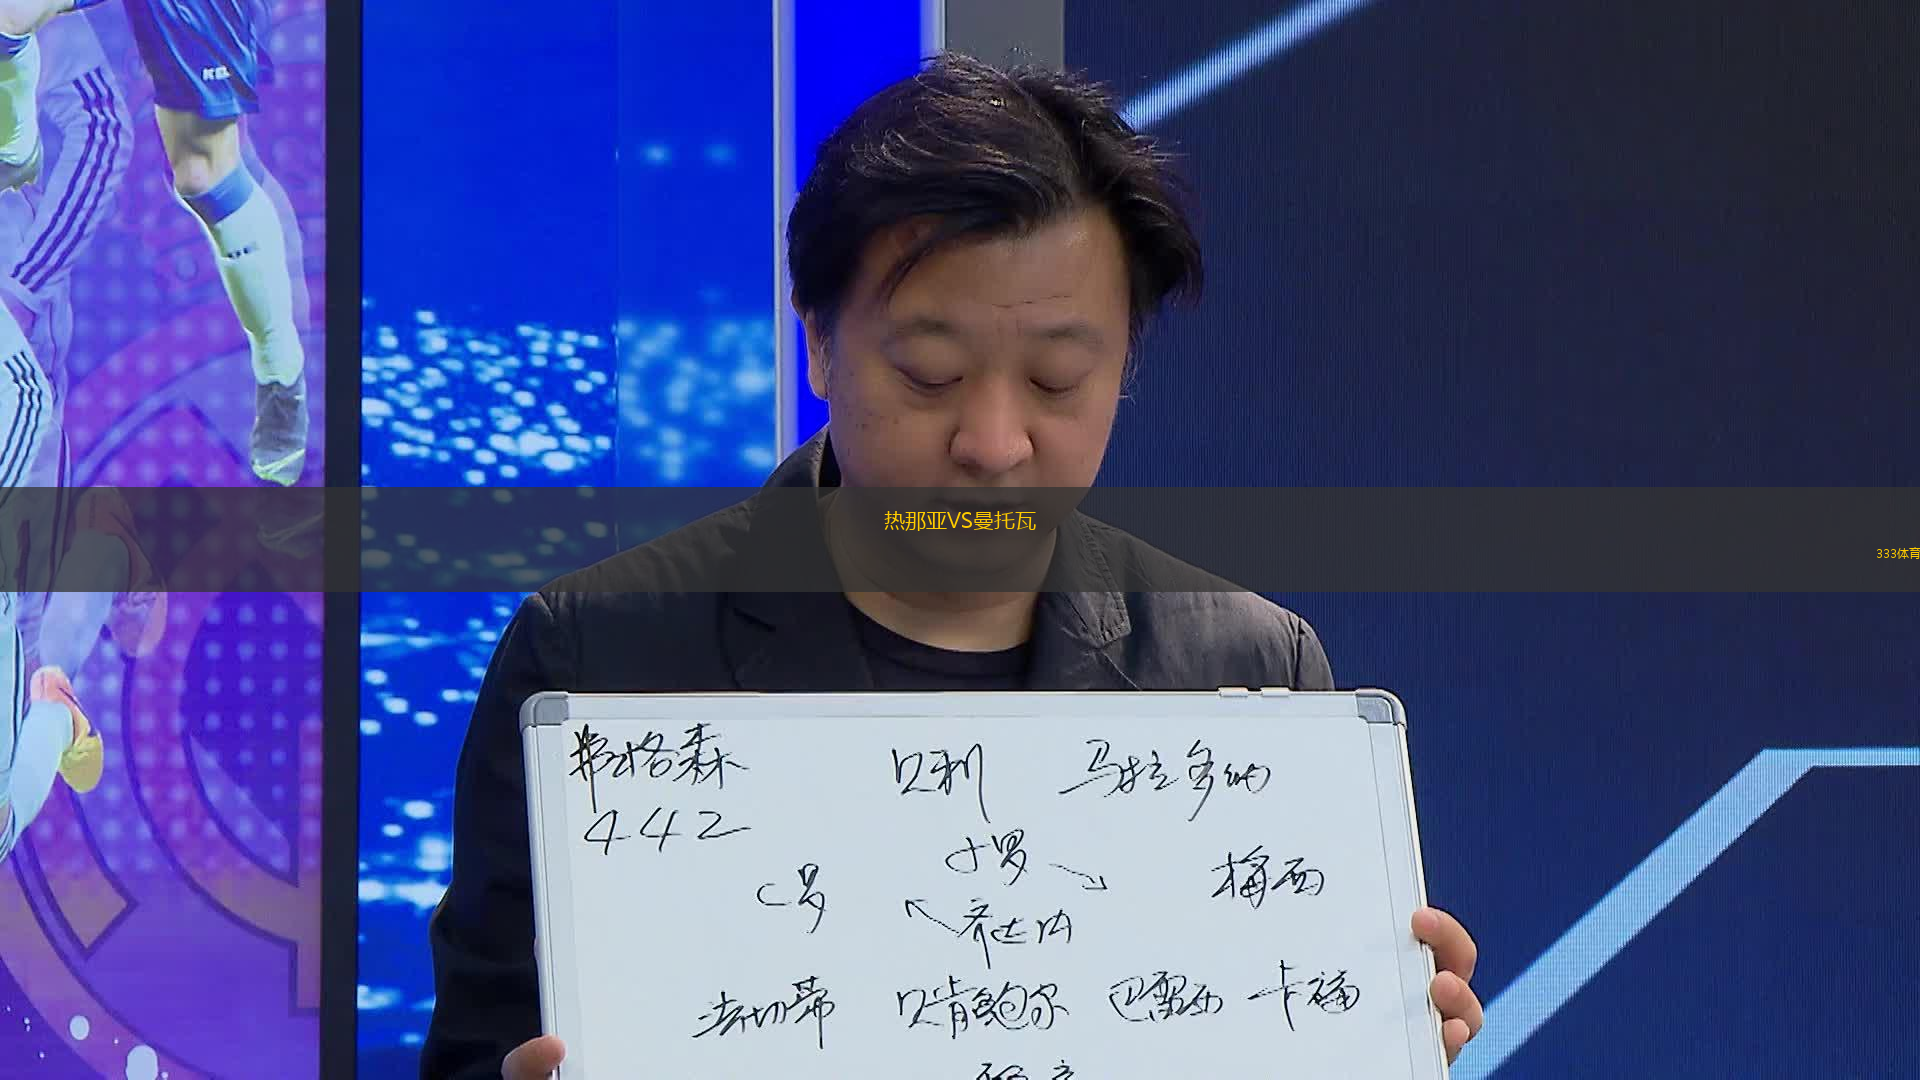 热那亚VS曼托瓦
333体育
弗格森 贝利 马拉多纳
442
小罗
C罗 梅西
齐达内
法切蒂 贝肯鲍尔 巴雷西 卡福